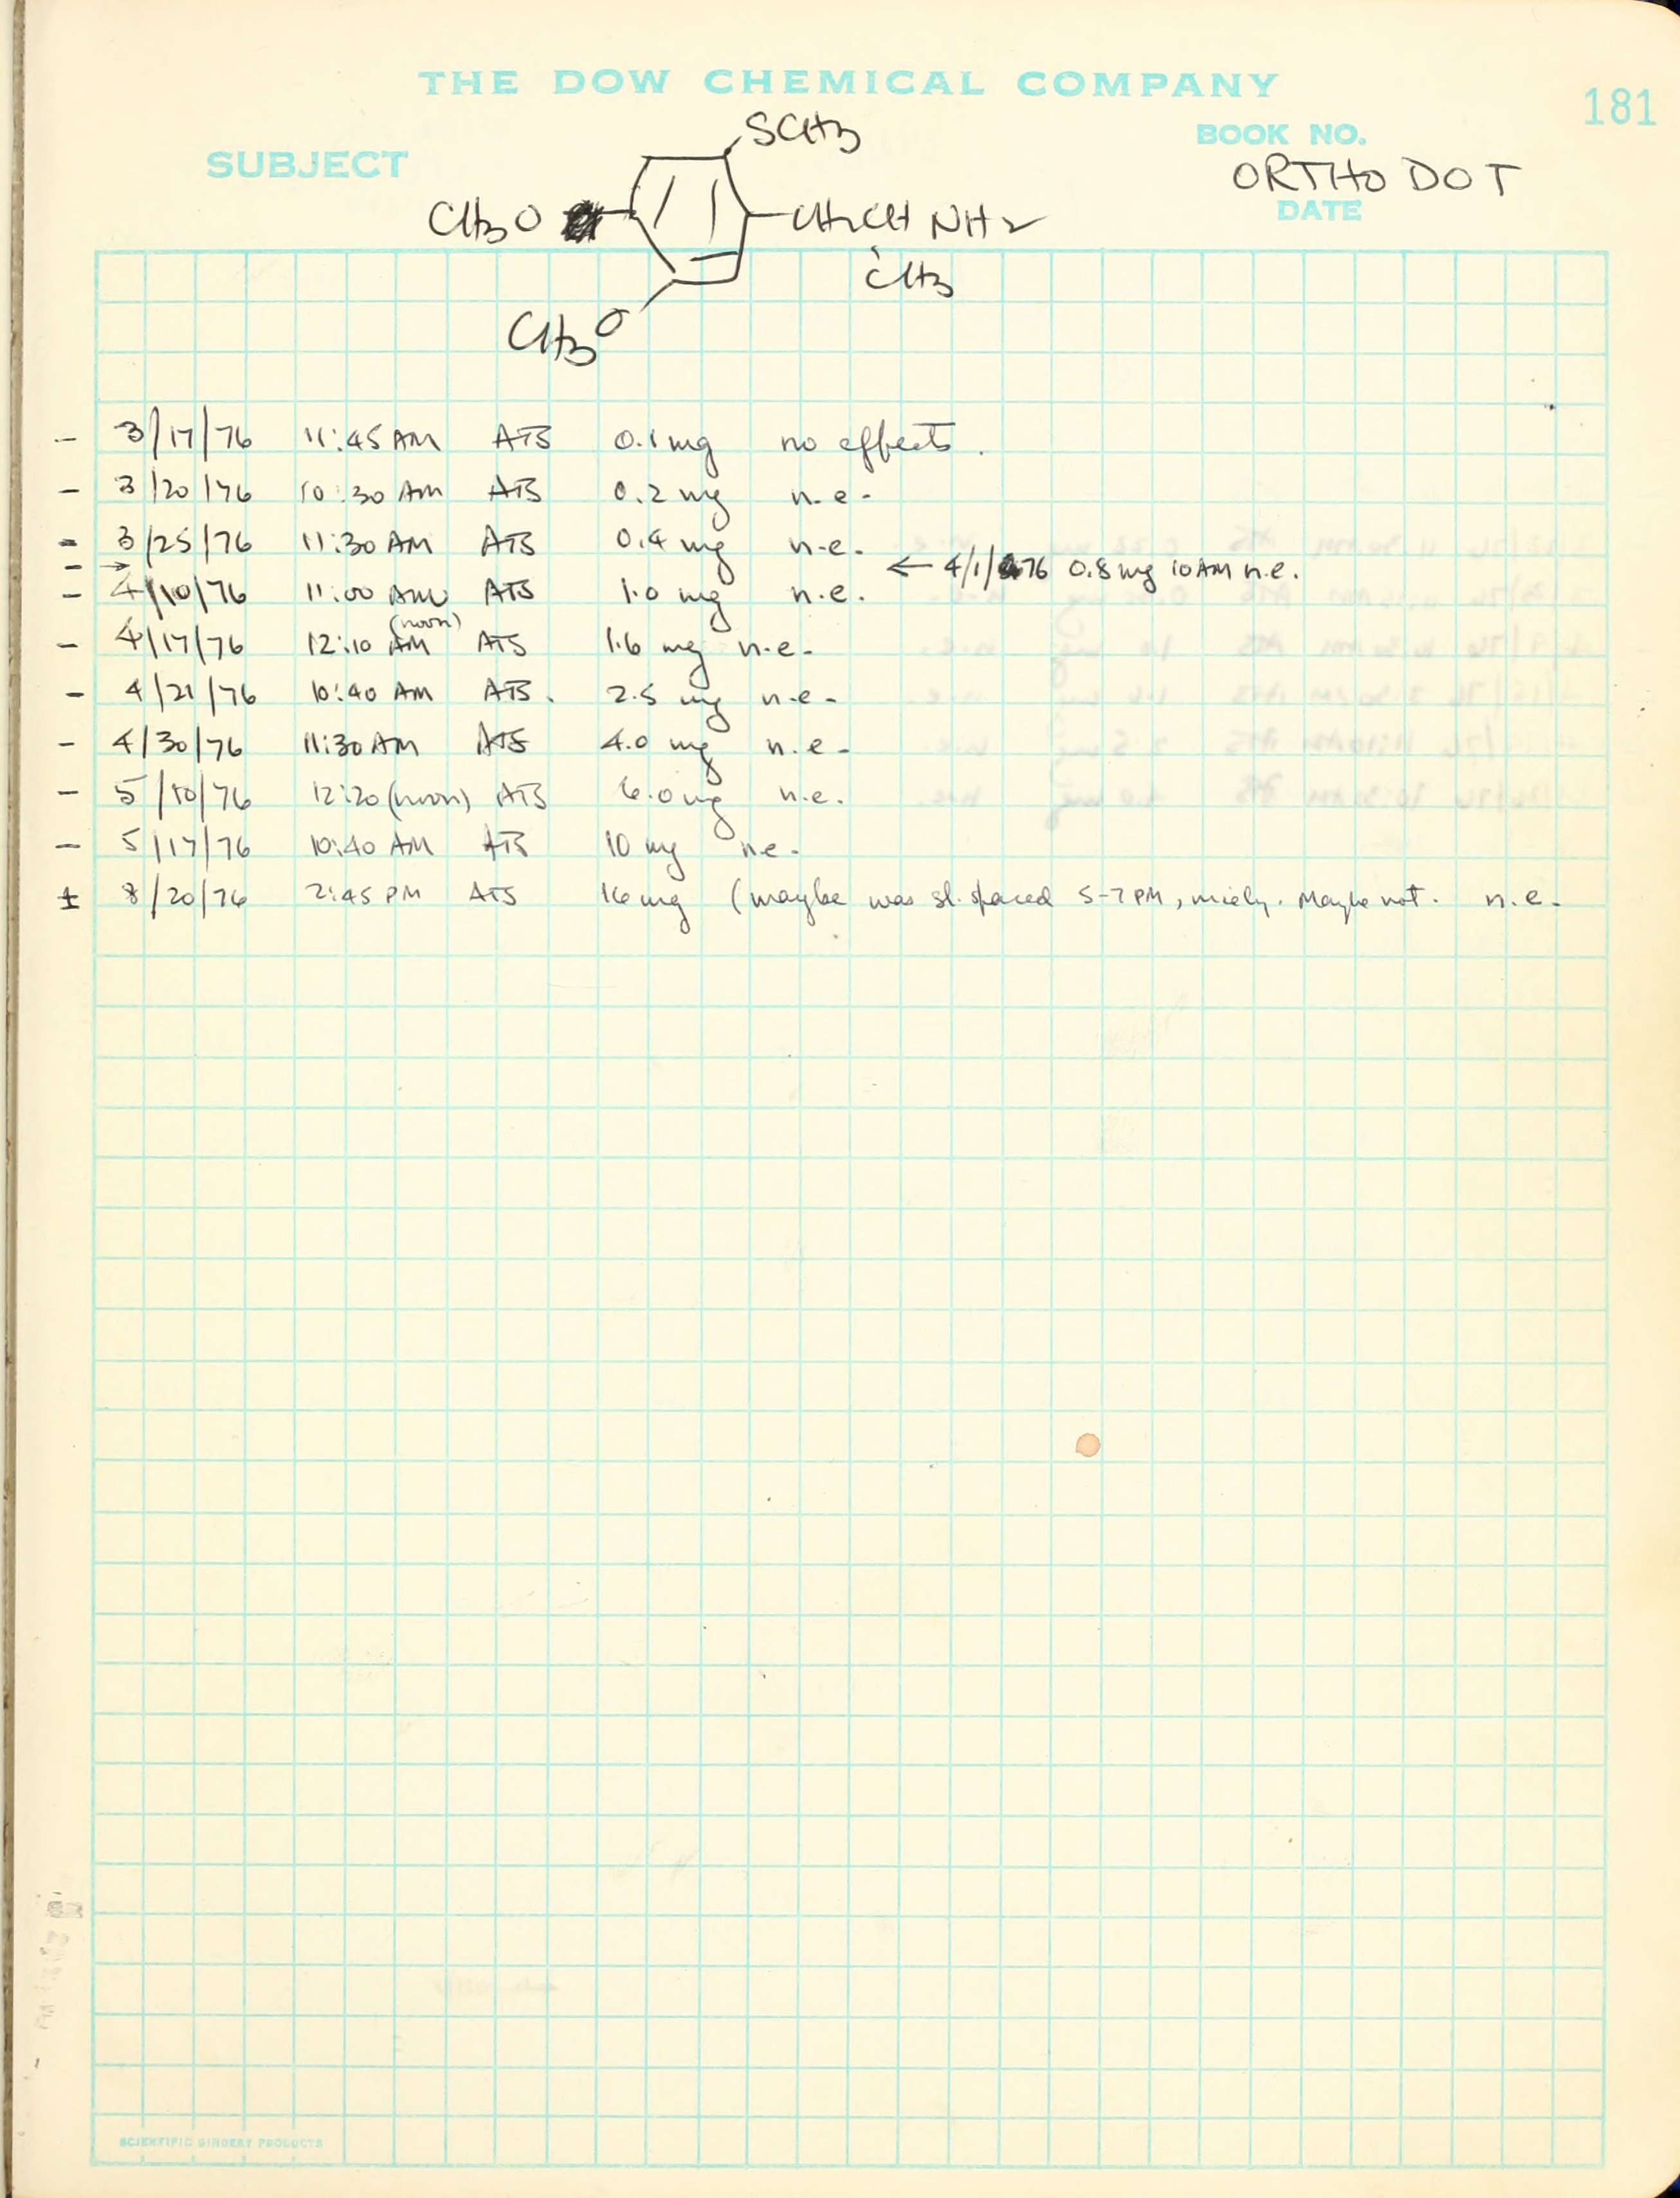 THE DOW CHEMICAL COMPANY
181
SUBJECT
BOOK NO.
ORTHO DOT
DATE
SCH3
CH3O
CH2CH NH2
CH3
CH3O
- 3/17/76 11:45 AM ATS 0.1 mg no effects.
- 3/20/76 10:30 AM ATS 0.2 mg n.e.
- 3/25/76 11:30 AM ATS 0.4 mg n.e.
- → ← 4/1/76 0.8 mg 10 AM n.e.
- 4/10/76 11:00 AM ATS 1.0 mg n.e.
(noon)
- 4/17/76 12:10 AM ATS 1.6 mg n.e.
- 4/21/76 10:40 AM ATS. 2.5 mg n.e.
- 4/30/76 11:30 AM ATS 4.0 mg n.e.
- 5/10/76 12:20 (noon) ATS 6.0 mg n.e.
- 5/17/76 10:40 AM ATS 10 mg n.e.
± 8/20/76 2:45 PM ATS 16 mg (maybe was sl. spaced 5-7 PM, nicely. Maybe not. n.e.
SCIENTIFIC BINDERY PRODUCTS